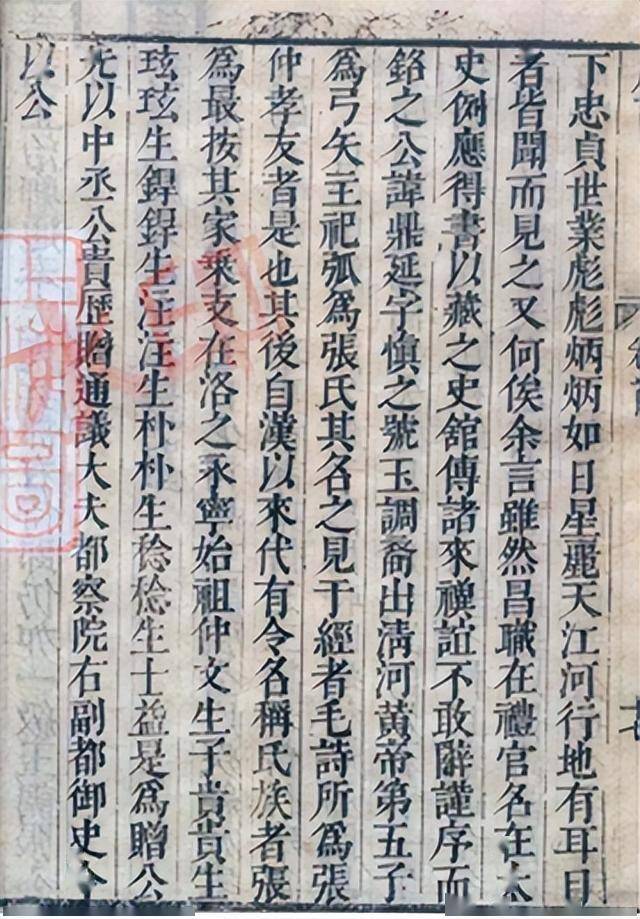 下忠貞世業彪彪炳炳如日星麗天江河行地有耳目
者皆聞而見之又何俟余言雖然昌職在禮官名在太
史例應得書以藏之史舘傳諸來禩誼不敢辭謹序而
銘之公諱鼎延字慎之號玉調裔出清河黃帝第五子
為弓矢主祀弧為張氏其名之見于經者毛詩所為張
仲孝友者是也其後自漢以來代有令名稱氏族者張
為最按其家乘支在洛之永寧始祖仲文生子貴貴生
玹玹生銲銲生汪汪生朴朴生稔稔生士益是為贈公
先以中丞公貴歷贈通議大夫都察院右副都御史今
以公